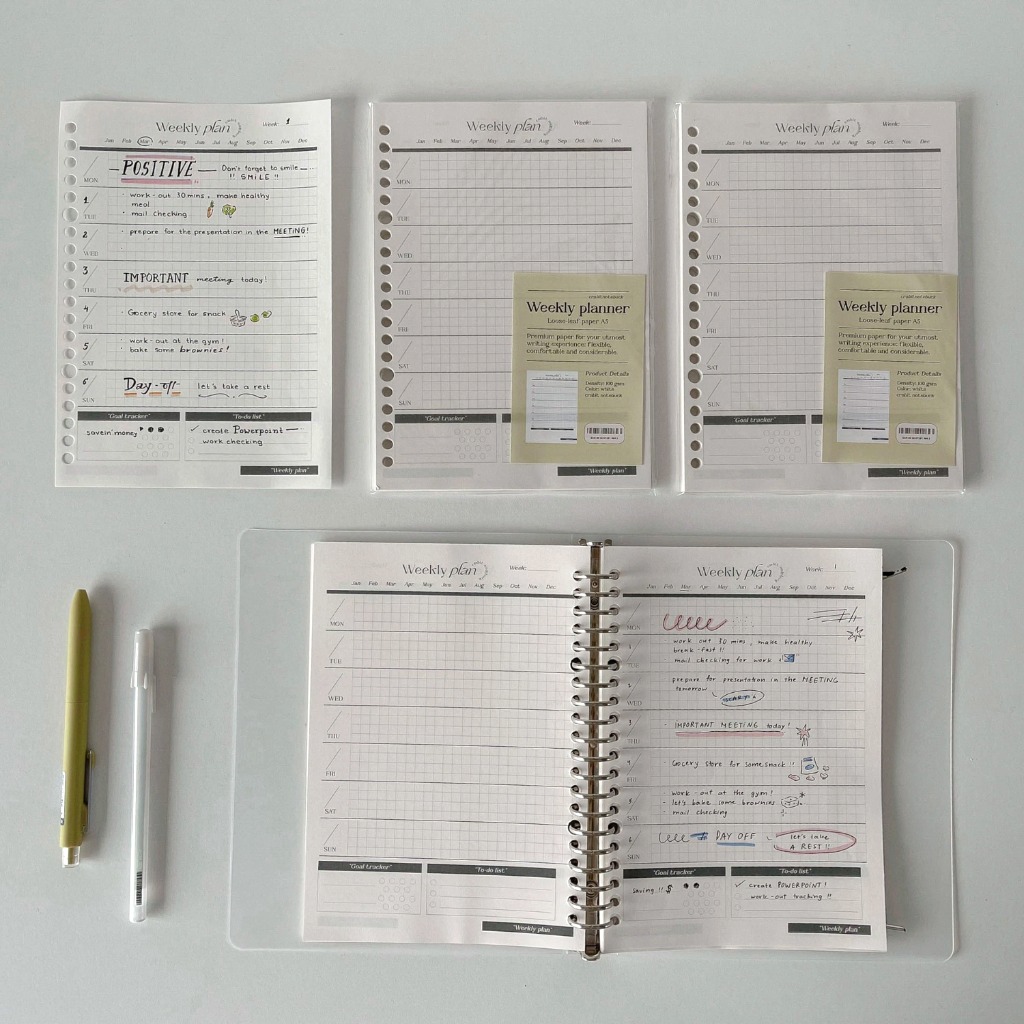 Weekly plan
Week: 1
Jan Feb Mar Apr May Jun Jul Aug Sep Oct Nov Dec
POSITIVE Don't forget to smile
!! SMILE !!
MON
1 · work-out 30 mins, make healthy
meal
· mail checking
TUE
2 · prepare for the presentation in the MEETING!
WED
3 IMPORTANT meeting today!
THU
4 · Gocery store for snack
FRI
5 · work-out at the gym!
· bake some brownies!
SAT
6 Day-off let's take a rest
SUN
"Goal tracker" "To-do list"
savein' money ✓ create Powerpoint
work checking
"Weekly plan"
Weekly plan
Week:
Jan Feb Mar Apr May Jun Jul Aug Sep Oct Nov Dec
MON
TUE
WED
THU
FRI
SAT
SUN
"Goal tracker"
"Weekly plan"
Weekly planner
Loose-leaf paper A5
Premium paper for your utmost
writing experience: flexible,
comfortable and considerable.
Product Details
Density: 100 gsm
Color: white
Weekly plan
Week:
Jan Feb Mar Apr May Jun Jul Aug Sep Oct Nov Dec
MON
TUE
WED
THU
FRI
SAT
SUN
"Goal tracker"
"Weekly plan"
Weekly planner
Loose-leaf paper A5
Premium paper for your utmost
writing experience: flexible,
comfortable and considerable.
Product Details
Density: 100 gsm
Color: white
Weekly plan
Week:
Jan Feb Mar Apr May Jun Jul Aug Sep Oct Nov Dec
MON
TUE
WED
THU
FRI
SAT
SUN
"Goal tracker" "To-do list"
"Weekly plan"
Weekly plan
Week: 1
Jan Feb Mar Apr May Jun Jul Aug Sep Oct Nov Dec
MON
1 · work out 30 mins, make healthy
break-fast!!
- mail checking for work
TUE
2 · prepare for presentation in the MEETING
tomorrow
WED
3 · IMPORTANT MEETING today!
THU
4 · Grocery store for some snack!!
FRI
5 · work-out at the gym!
- let's bake some brownies
- mail checking
SAT
6 DAY OFF let's take
A REST!!
SUN
"Goal tracker" "To-do list"
saving !! $ ✓ create POWERPOINT!
work-out tracking!!
"Weekly plan"